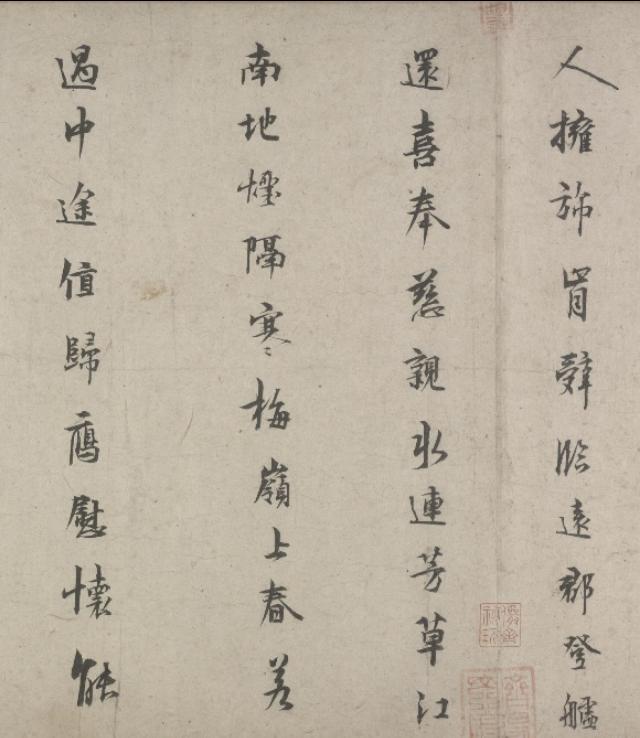 人擁斾肯辭臨遠郡登艫
還喜奉慈親水連芳草江
南地煙隔寒梅嶺上春若
過中途值歸鴈慰懷能